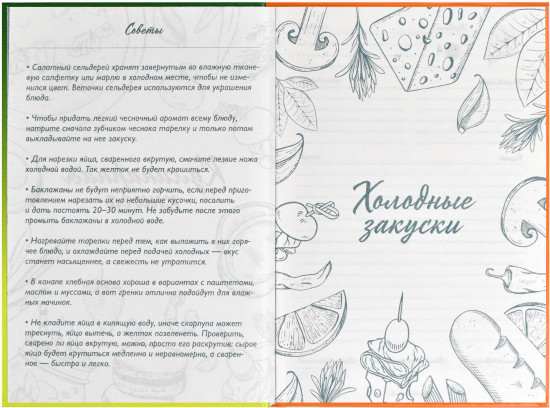 Советы
• Салатный сельдерей хранят завернутым во влажную ткане-
вую салфетку или марлю в холодном месте, чтобы не изме-
нился цвет. Веточки сельдерея используются для украшения
блюда.
• Чтобы придать легкий чесночный аромат всему блюду,
натрите сначала зубчиком чеснока тарелку и только потом
выкладывайте на нее закуску.
• Для нарезки яйца, сваренного вкрутую, смочите лезвие ножа
холодной водой. Так желток не будет крошиться.
• Баклажаны не будут неприятно горчить, если перед приго-
товлением нарезать их на небольшие кусочки, посолить
и дать постоять 20–30 минут. Не забудьте после этого
промыть баклажаны в холодной воде.
• Нагревайте тарелки перед тем, как выложить в них горя-
чее блюдо, и охлаждайте перед подачей холодных — вкус
станет насыщеннее, а свежесть не утратится.
• В канапе хлебная основа хороша в вариантах с паштетами,
маслом и муссами, а вот гренки отлично подойдут для влаж-
ных начинок.
• Не кладите яйца в кипящую воду, иначе скорлупа может
треснуть, яйцо вытечь, а желток позеленеть. Проверить,
сварено ли яйцо вкрутую, можно, просто его раскрутив: сырое
яйцо будет крутиться медленно и неравномерно, а сварен-
ное — быстро и легко.
Холодные
закуски